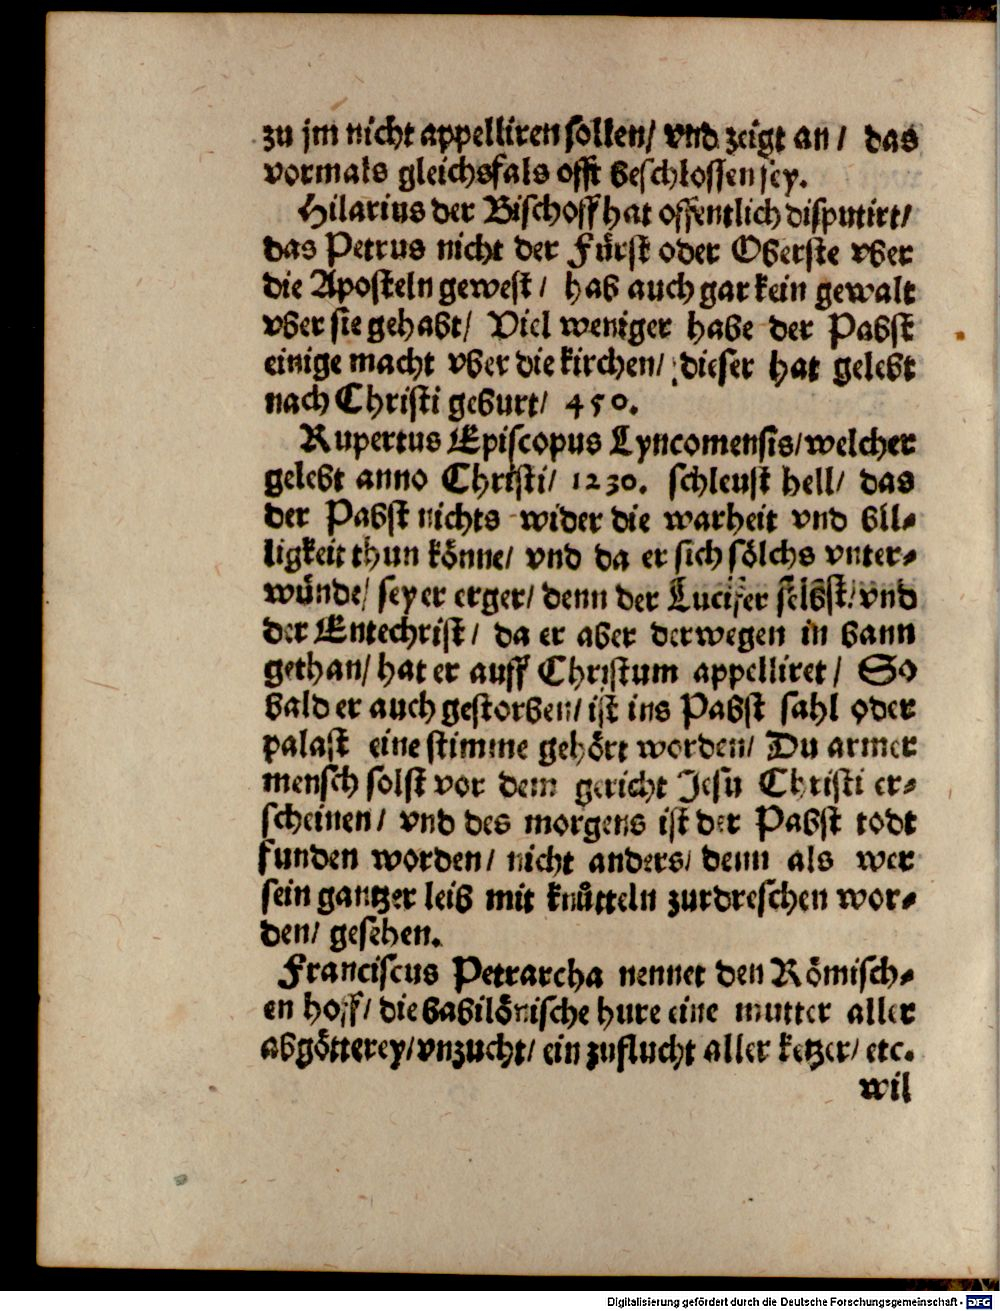 zu jm nicht appelliren sollen/ vnd zeigt an/ das
vormals gleichsfals offt beschlossen sey.
Hilarius der Bischoff hat offentlich disputirt/
das Petrus nicht der Fürst oder Oberste vber
die Aposteln gewest/ hab auch gar kein gewalt
vber sie gehabt/ Viel weniger habe der Pabst
einige macht vber die kirchen/ dieser hat gelebt
nach Christi geburt/ 450.
Rupertus Episcopus Lyncomensis/ welcher
gelebt anno Christi/ 1230. schleust hell/ das
der Pabst nichts wider die warheit vnd bil-
ligkeit thun könne/ vnd da er sich sölchs vnter-
wünde/ sey er erger/ denn der Lucifer selbst/ vnd
der Entechrist/ da er aber derwegen in bann
gethan/ hat er auff Christum appelliret/ So
bald er auch gestorben/ ist ins Pabst sahl oder
palast eine stimme gehört worden/ Du armer
mensch solst vor dem gericht Jesu Christi er-
scheinen/ vnd des morgens ist der Pabst todt
funden worden/ nicht anders/ denn als wer
sein gantzer leib mit knütteln zurdreschen wor-
den/ gesehen.
Franciscus Petrarcha nennet den Römisch-
en hoff/ die babilönische hure eine mutter aller
abgötterey/ vnzucht/ ein zuflucht aller ketzer/ etc.
wil
Digitalisierung gefördert durch die Deutsche Forschungsgemeinschaft - DFG